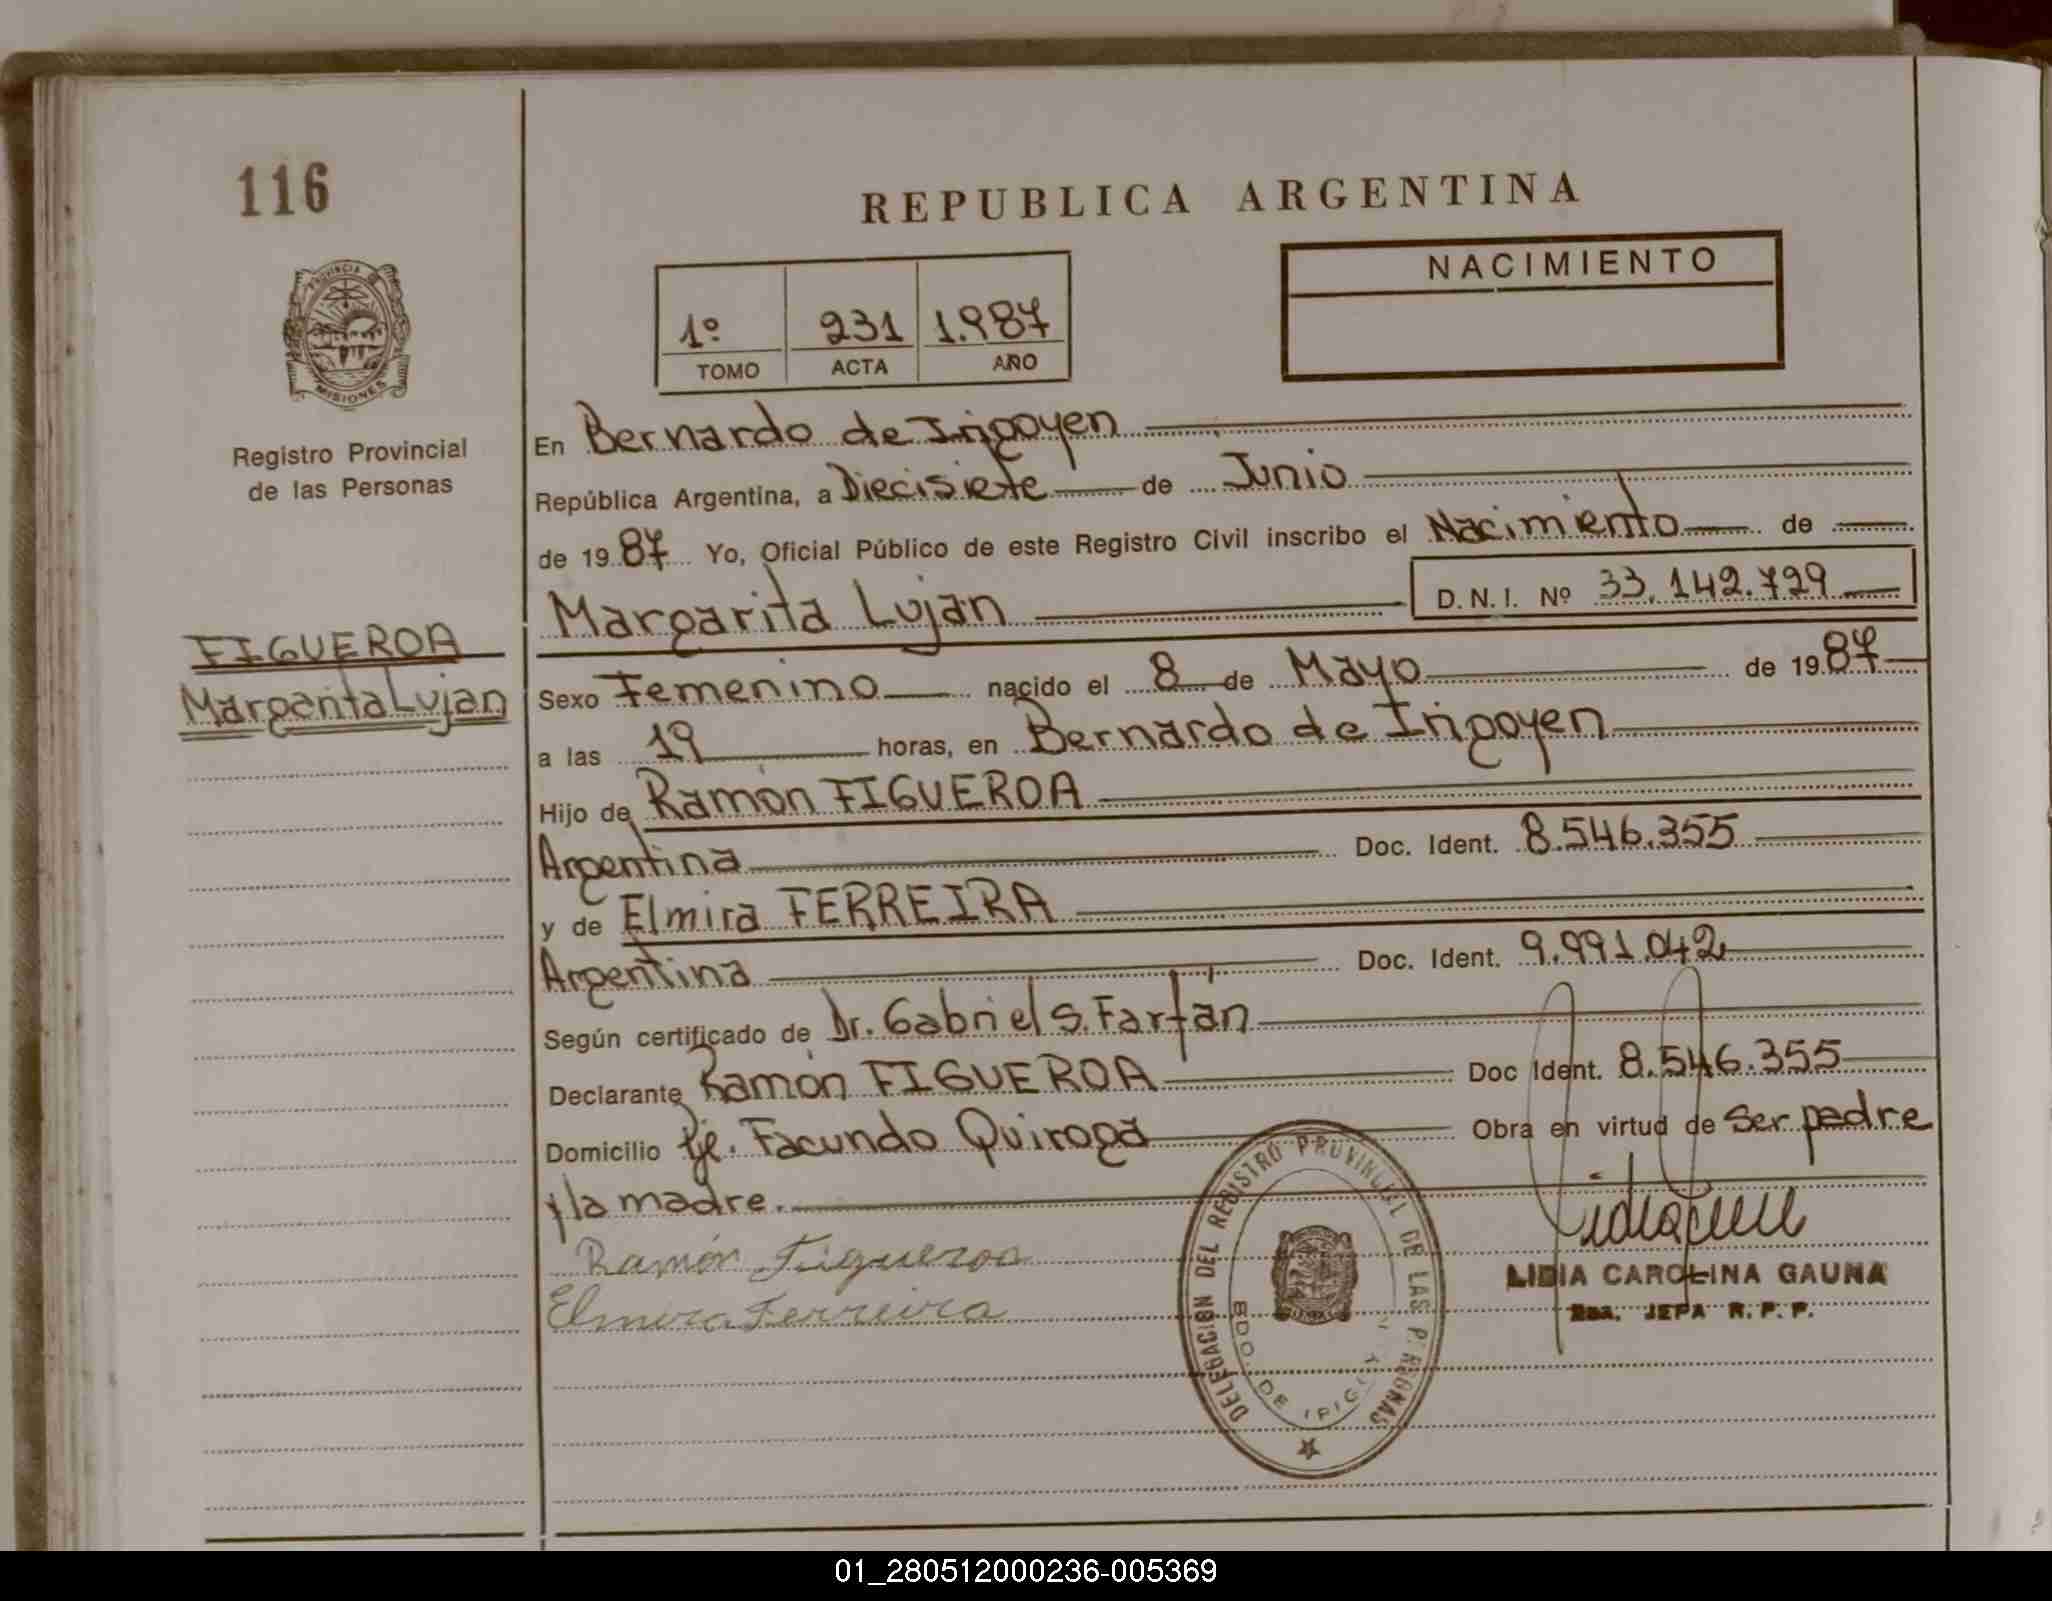 116
REPUBLICA ARGENTINA
NACIMIENTO
1º 231 1.987
TOMO ACTA AÑO
PROVINCIA DE
MISIONES
Registro Provincial
de las Personas
En Bernardo de Irigoyen
República Argentina, a Diecisiete de Junio
de 19 87 Yo, Oficial Público de este Registro Civil inscribo el Nacimiento de
Margarita Luján D.N.I. Nº 33.142.729
FIGUEROA
Margarita Lujan
Sexo Femenino nacido el 8 de Mayo de 19 87
a las 19 horas, en Bernardo de Irigoyen
Hijo de Ramón FIGUEROA
Argentina Doc. Ident. 8.546.355
y de Elmira FERREIRA
Argentina Doc. Ident. 9.991.042
Según certificado de Dr. Gabriel S. Farfán
Declarante Ramón FIGUEROA Doc Ident. 8.546.355
Domicilio Pje. Facundo Quiroga Obra en virtud de ser padre
y la madre.
Ramón Figueroa
Elmira Ferreira
DELEGACION DEL REGISTRO PROVINCIAL DE LAS PERSONAS
BDO. DE IRIGOYEN
LIDIA CAROLINA GAUNA
JEFA R.P.P.
01_280512000236-005369